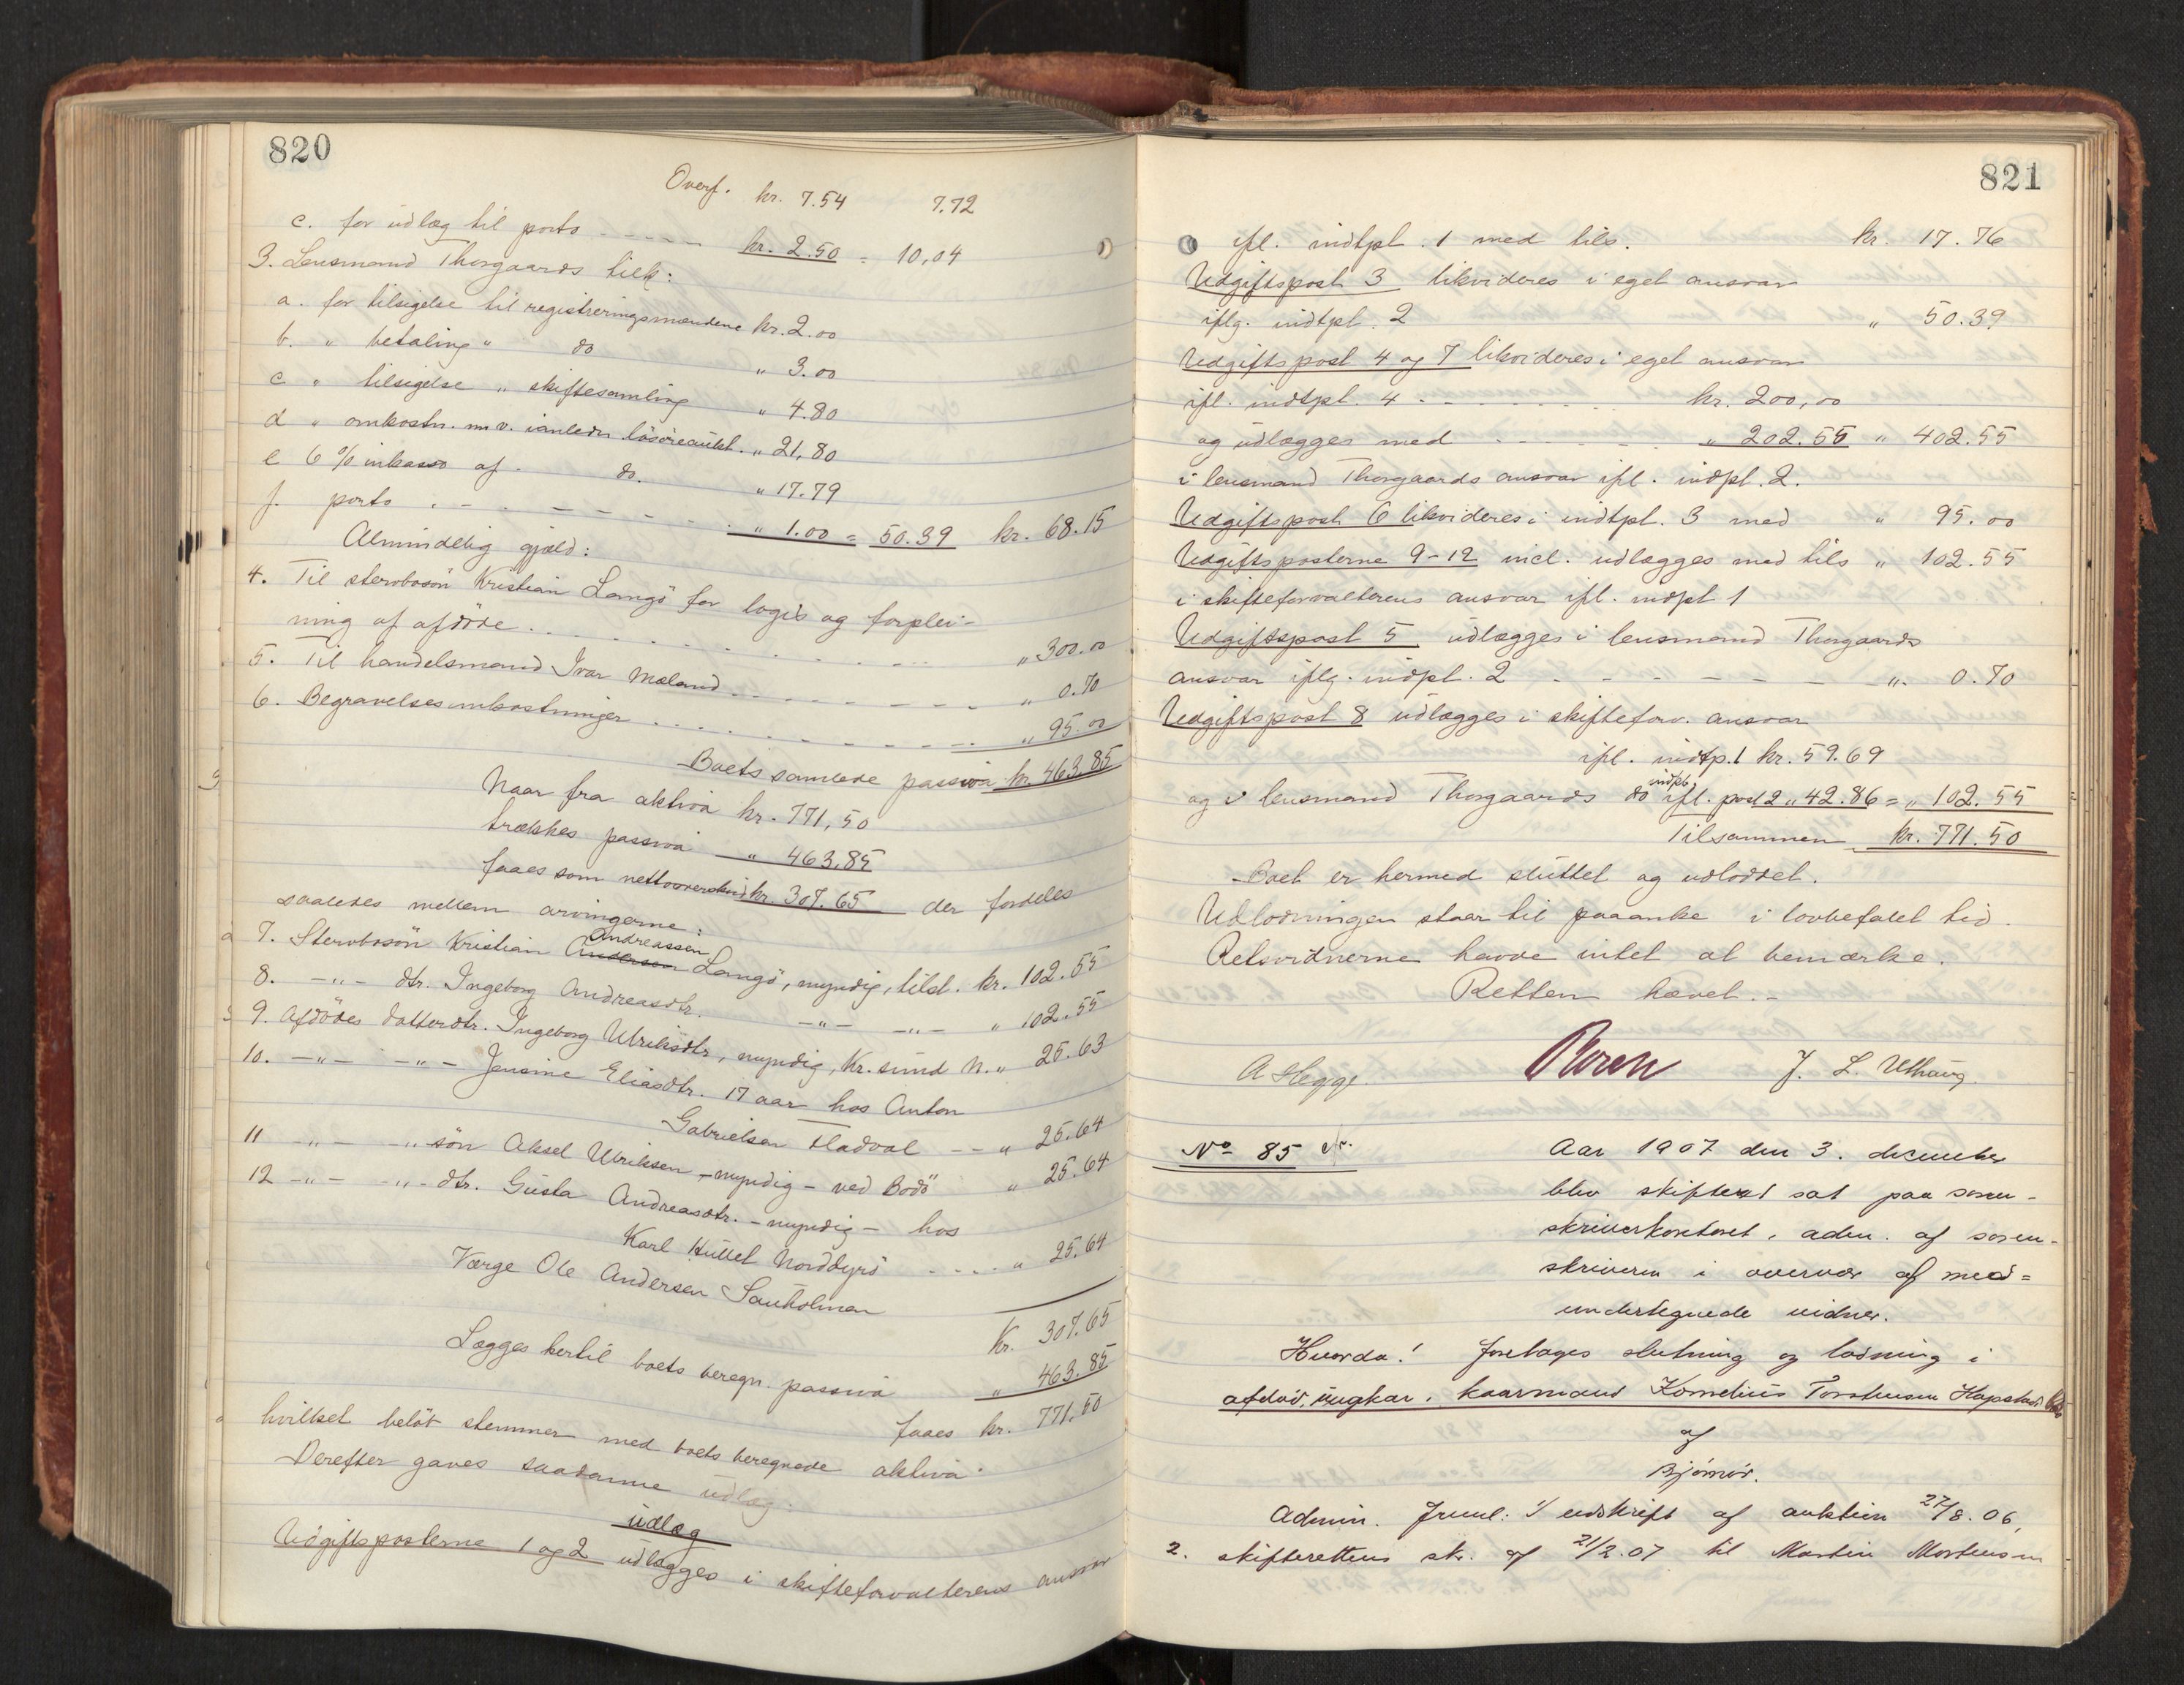 820
Overf. kr. 7.54 7.72
c. for udlæg til porto - - - - - kr. 2.50 = 10,04
3. Lensmand Thorgaards tilk:
a. for tilsigelse til registreringsmændene kr. 2.00
b. " betaling " do " 3.00
c " tilsigelse " skiftesamling " 4.80
d " omkostn. m. v. i anledn løsøreaukt. " 21,80
e 6 % inkasso af do. " 17.79
f. porto . - - - - - - - " 1.00 = 50.39 kr. 68.15
Almindelig gjæld:
4. Til stervbosøn Kristian Langø for logis og forplei-
ning af afdøde . . . . . . . " 300.00
5. Til handelsmand Ivar Mæland - - - - - " 0.70
6. Begravelsesomkostninger . . . - - - - - " 95.00
Boets samlede passiva kr. 463.85
Naar fra aktiva kr. 771,50
trækkes passiva " 463.85
faaes som nettooverskud kr. 307.65 der fordeles
saaledes mellem arvingerne:
7. Stervbosøn Kristian Andersen Andreassen Langø, myndig, tilst. kr. 102.55
8. -"- dtr. Ingeborg Andreasdtr. -"- -"- " 102.55
9. Afdødes datterdtr. Ingeborg Ulriksdtr, myndig, Kr. sund N. " 25.63
10. -"- -"- Jensine Eliasdtr. 17 aar hos Anton
Gabrielsen Hladval - - " 25.64
11 -"- -"- søn Aksel Ulriksen, - myndig - ved Bodø " 25.64
12 -"- -"- dtr. Gusta Andreasdtr. - myndig - hos
Karl Hüttel Norddyrø - - - - " 25.64
Værge Ole Andersen Sauholmen
Kr. 307.65
Lægges hertil boets beregn. passiva " 463.85
faaes kr. 771.50
hvilket beløb stemmer med boets beregnede aktiva.
Derefter gaves saadanne udlæg:
udlæg
Udgiftsposterne 1 og 2 udlægges i skifteforvalterens ansvar
821
ifl. indtpl. 1 med tils. kr. 17.76
Udgiftspost 3 likvideres i eget ansvar
iflg. indtpl. 2 " 50.39
Udgiftspost 4 og 7 likvideres i eget ansvar
ifl. indtpl. 4 - - - - - - kr. 200,00
og udlægges med - - - - - " 202.55 " 402.55
i lensmand Thorgaards ansvar ifl. indpl. 2.
Udgiftspost 6 likvideres i indtpl. 3 med " 95.00
Udgiftsposterne 9-12 incl. udlægges med tils " 102.55
i skifteforvalterens ansvar ifl. indpl 1
Udgiftspost 5 udlægges i lensmand Thorgaards
ansvar iflg. indpl. 2 - - - - - - - - " 0.70
Udgiftspost 8 udlægges i skifteforv. ansvar
ifl. indtp. 1 kr. 59.69
og i lensmand Thorgaards do ifl. indpl. post 2 " 42.86 = " 102.55
Tilsammen kr. 771.50
Boet er hermed sluttet og udloddet.
Udlodningen staar til paaanke i lovbefalet tid.
Retsvidnerne havde intet at bemærke.
Retten hævet. -
A Hegge. J. L. Uthaug.
No 85
Aar 1907 den 3. december
blev skifteret sat paa soren-
skriverkontoret, adm. af soren-
skriveren i overvær af med=
undertegnede vidner.
Hvorda! foretages slutning og lodning i
afdød, ungkar, kaarmand Kornelius Torstensen Hopstad
af
Bjørnør.
Admin. freml: 1/ udskrift af auktion 27/8. 06,
2. skifterettens skr. af 21/2. 07 til Martin Mortensen